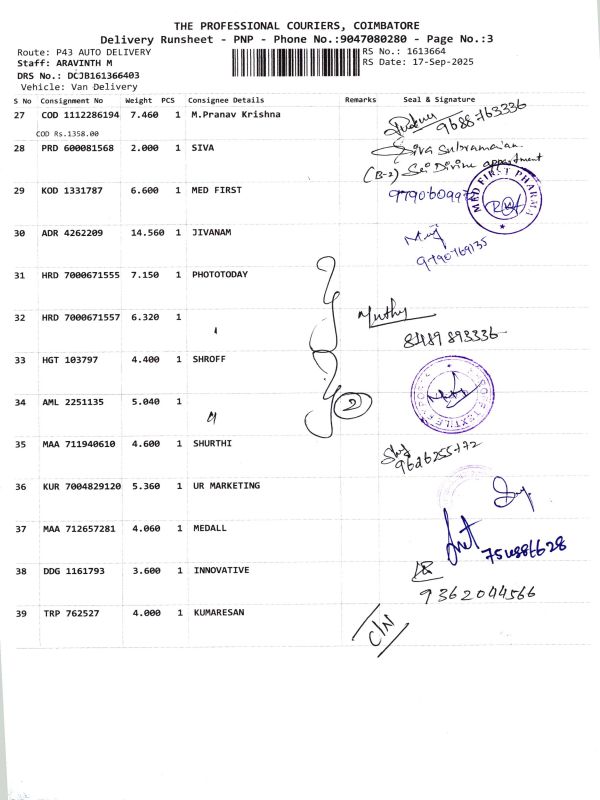 THE PROFESSIONAL COURIERS, COIMBATORE
Delivery Runsheet - PNP - Phone No.:9047080280 - Page No.:3
Route: P43 AUTO DELIVERY
RS No.: 1613664
Staff: ARAVINTH M
RS Date: 17-Sep-2025
DRS No.: DCJB161366403
Vehicle: Van Delivery
S No Consignment No Weight PCS Consignee Details Remarks Seal & Signature
27 COD 1112286194 7.460 1 M.Pranav Krishna 9688763336
COD Rs.1358.00
28 PRD 600081568 2.000 1 SIVA Siva Subramanian
(B-2) Sai Divine appartment
29 KOD 1331787 6.600 1 MED FIRST MED FIRST PHARMA
30 ADR 4262209 14.560 1 JIVANAM
9790769135
31 HRD 7000671555 7.150 1 PHOTOTODAY
32 HRD 7000671557 6.320 1 " Muthu
8489893336
33 HGT 103797 4.400 1 SHROFF
34 AML 2251135 5.040 1 " 2
35 MAA 711940610 4.600 1 SHURTHI
9626255172
36 KUR 7004829120 5.360 1 UR MARKETING
37 MAA 712657281 4.060 1 MEDALL
38 DDG 1161793 3.600 1 INNOVATIVE
9362044566
39 TRP 762527 4.000 1 KUMARESAN C/N